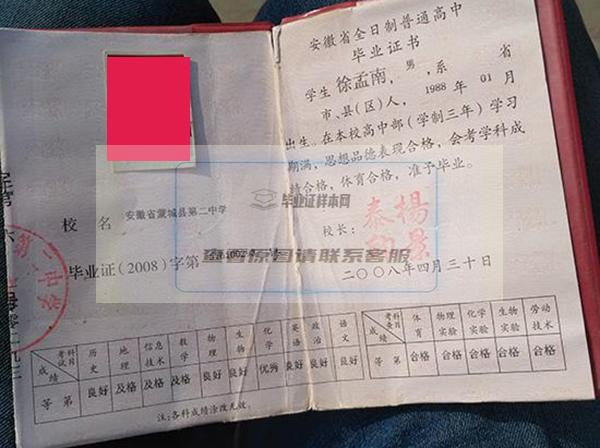 校 名
安徽省蒙城县第二中学
毕业证(2008)字第
安徽省全日制普通高中
毕业证书
学生 徐孟南, 男, 系 省
市、县(区)人, 1988 年 01 月
出生。在本校高中部(学制三年)学习
期满, 思想品德表现合格, 会考学科成
绩合格, 体育合格, 准予毕业。
校长:
二〇〇八年四月三十日
毕业证样本网
查看原图请联系客服
考试科目 历史 地理 信息技术 数学 物理 生物 化学 英语 政治 语文
成绩
等 第 良好 及格 及格 及格 良好 良好 优秀 良好 良好 良好
注:各科成绩涂改无效。
考查科目 体育 物理实验 化学实验 生物实验 劳动技术
成绩
等 第 合格 合格 合格 合格 合格